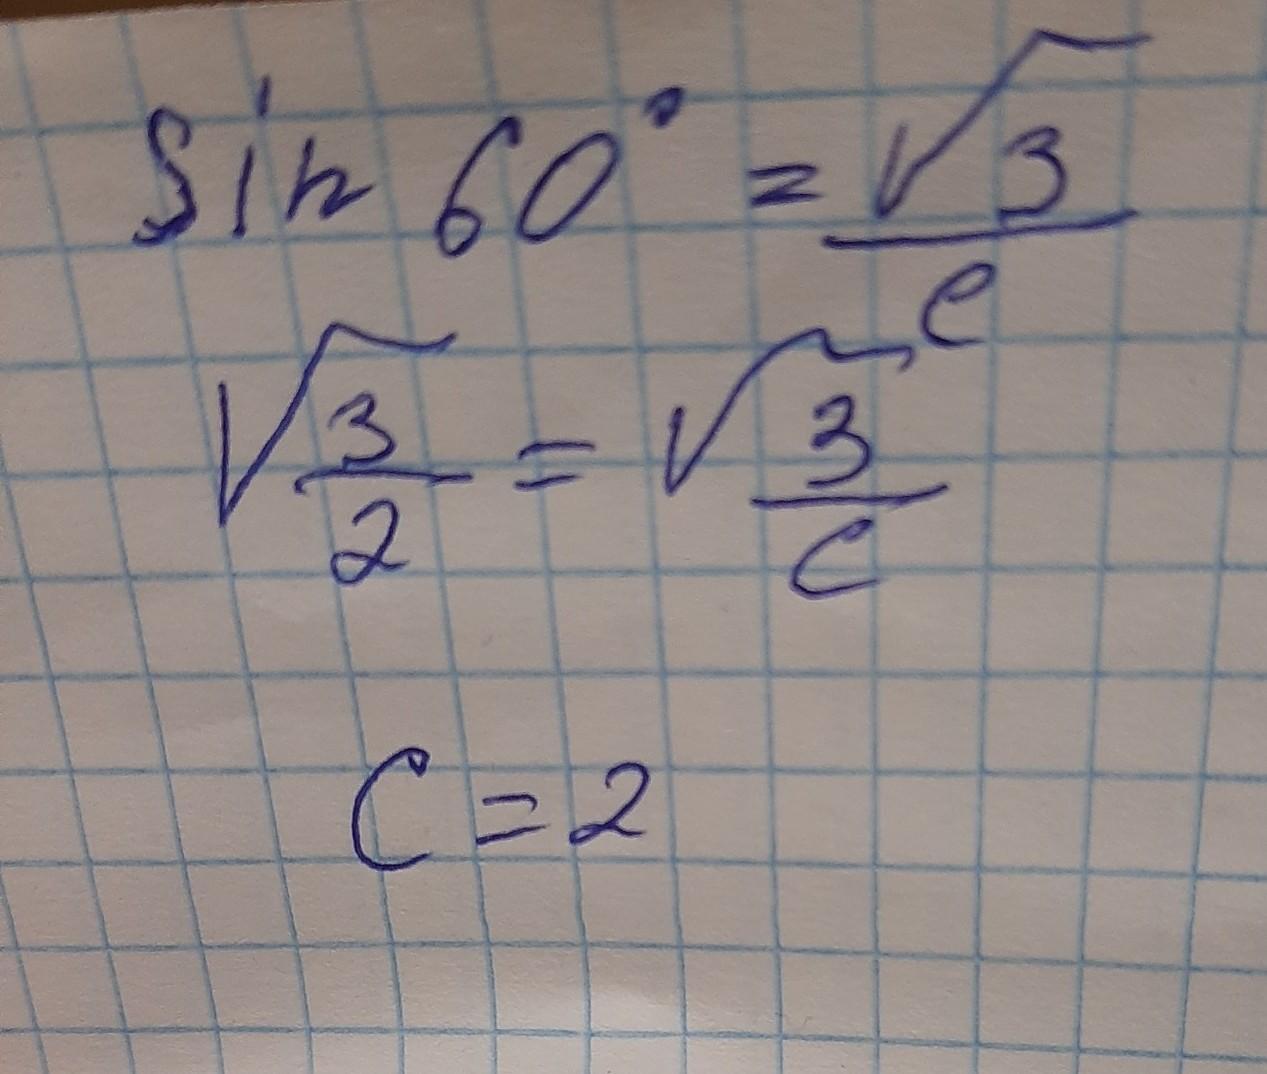 sin 60° = √3/c
√3/2 = √3/c
C = 2